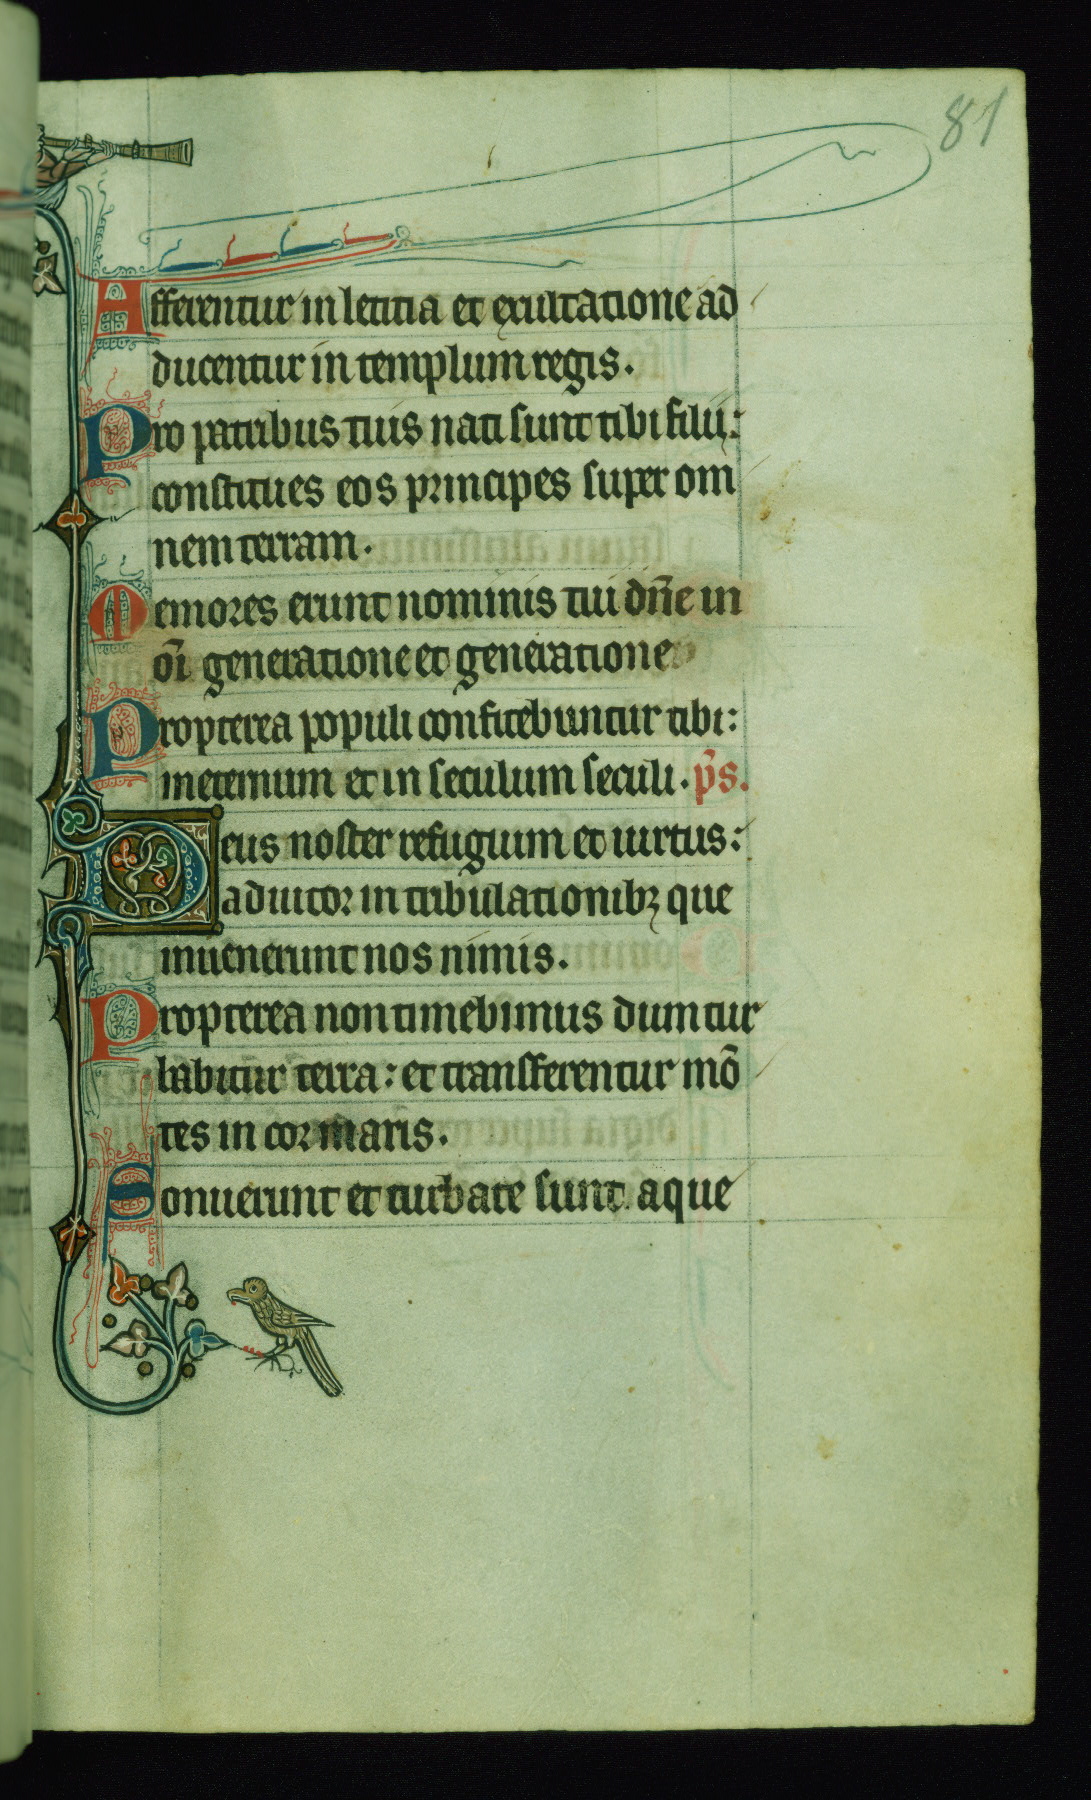 81
Afferentur in letitia et exultatione ad
ducentur in templum regis.
Pro patribus tuis nati sunt tibi filii:
constitues eos principes super om
nem terram.
Memores erunt nominis tui dn̄e in
om̄i generatione et generatione
Propterea populi confitebuntur tibi:
ineternum et in seculum seculi. p̄s.
Deus noster refugium et uirtus:
adiutor in tribulationibꝫ que
inuenerunt nos nimis.
Propterea non timebimus dum tur
labitur terra: et transferentur mō
tes in cor maris.
Sonuerunt et turbate sunt aque